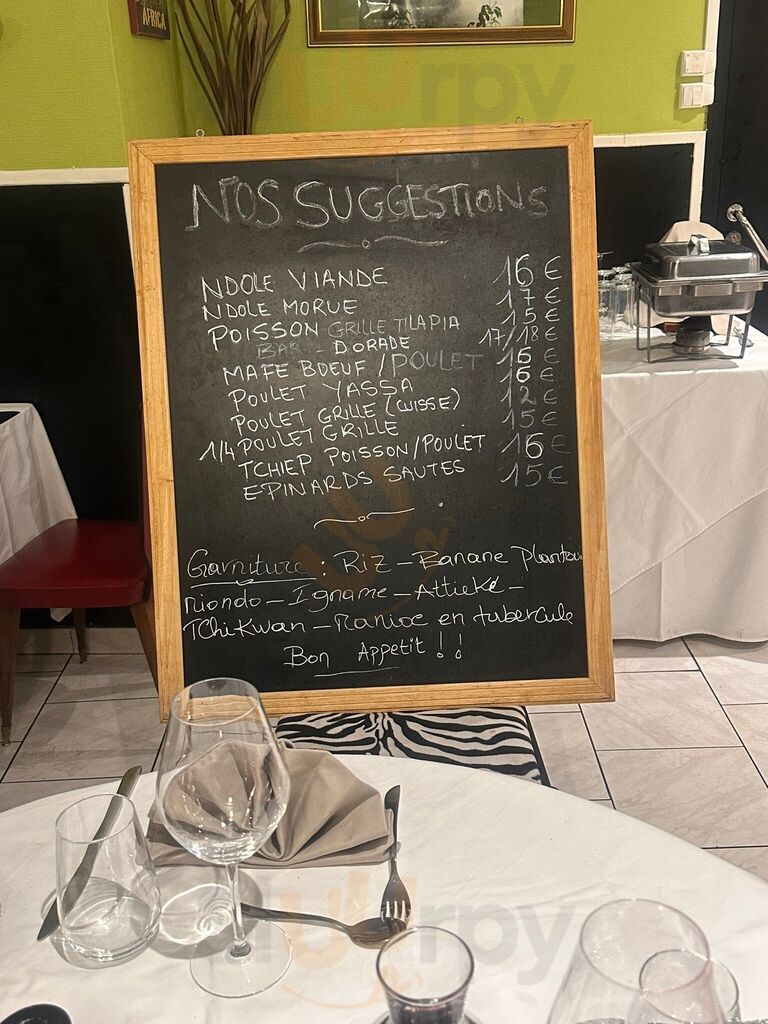 AFRICA
NOS SUGGESTIONS
NDOLE VIANDE 16 €
NDOLE MORUE 17 €
POISSON GRILLE TILAPIA 15 €
BAR - DORADE 17/18 €
MAFE BOEUF / POULET 16 €
POULET YASSA 16 €
POULET GRILLE (CUISSE) 12 €
1/4 POULET GRILLE 15 €
TCHIEP POISSON/POULET 16 €
EPINARDS SAUTES 15 €
Garniture : Riz - Banane Plantain
Miondo - Igname - Attieke -
TChiKwan - Manioc en tubercule
Bon Appetit !!